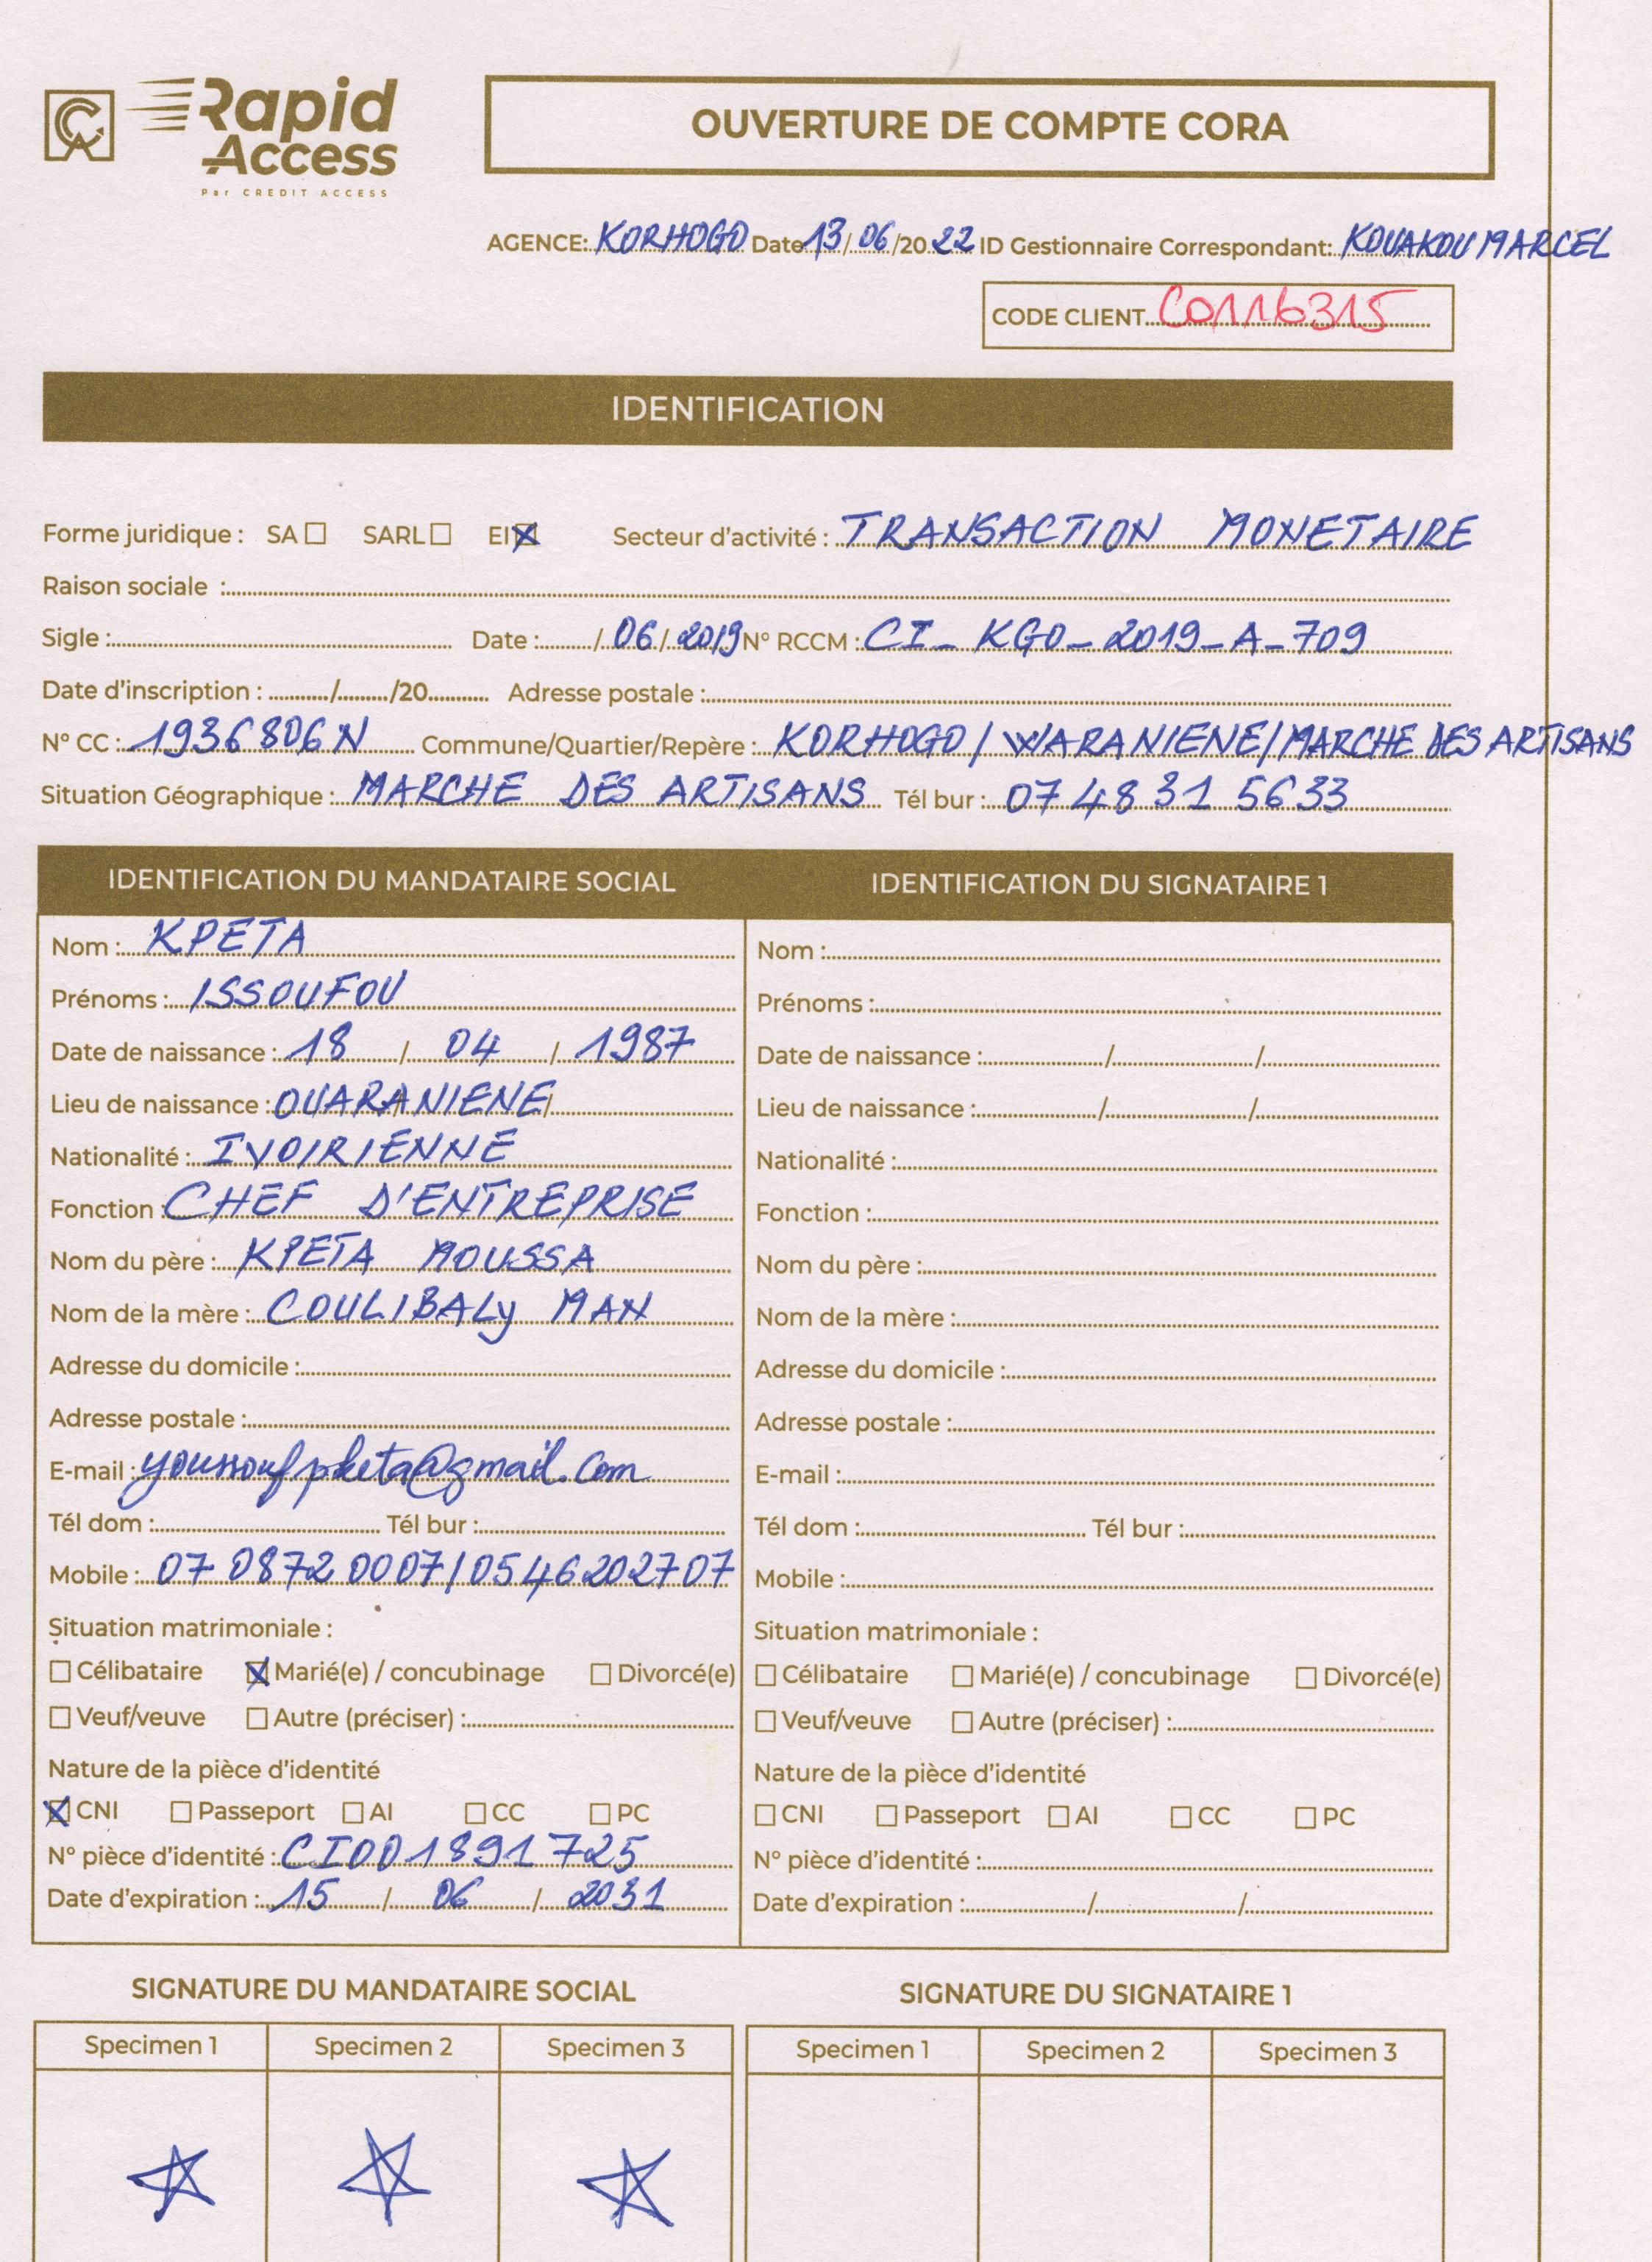 Rapid Access
Par CREDIT ACCESS
OUVERTURE DE COMPTE CORA
AGENCE: KORHOGO Date 13/06/2022 ID Gestionnaire Correspondant: KOUAKOU MARCEL
CODE CLIENT C0116315
IDENTIFICATION
Forme juridique : SA ☐ SARL ☐ EI ☒ Secteur d'activité : TRANSACTION MONETAIRE
Raison sociale :
Sigle : Date : / 06 / 2019 N° RCCM : CI_KGO_2019_A_709
Date d'inscription : / /20 Adresse postale :
N° CC : 1936806N Commune/Quartier/Repère : KORHOGO / WARANIENE/MARCHE DES ARTISANS
Situation Géographique : MARCHE DES ARTISANS Tél bur : 07 48 31 5633
IDENTIFICATION DU MANDATAIRE SOCIAL
Nom : KPETA
Prénoms : ISSOUFOU
Date de naissance : 18 / 04 / 1987
Lieu de naissance : OUARANIENE
Nationalité : IVOIRIENNE
Fonction : CHEF D'ENTREPRISE
Nom du père : KPETA MOUSSA
Nom de la mère : COULIBALY MAN
Adresse du domicile :
Adresse postale :
E-mail : youssoufpketa@gmail.com
Tél dom : Tél bur :
Mobile : 07 0872 0007/0546202707
Situation matrimoniale :
☐ Célibataire ☒ Marié(e) / concubinage ☐ Divorcé(e)
☐ Veuf/veuve ☐ Autre (préciser) :
Nature de la pièce d'identité
☒ CNI ☐ Passeport ☐ AI ☐ CC ☐ PC
N° pièce d'identité : CI001891725
Date d'expiration : 15 / 06 / 2031
IDENTIFICATION DU SIGNATAIRE 1
Nom :
Prénoms :
Date de naissance : / /
Lieu de naissance : / /
Nationalité :
Fonction :
Nom du père :
Nom de la mère :
Adresse du domicile :
Adresse postale :
E-mail :
Tél dom : Tél bur :
Mobile :
Situation matrimoniale :
☐ Célibataire ☐ Marié(e) / concubinage ☐ Divorcé(e)
☐ Veuf/veuve ☐ Autre (préciser) :
Nature de la pièce d'identité
☐ CNI ☐ Passeport ☐ AI ☐ CC ☐ PC
N° pièce d'identité :
Date d'expiration : / /
SIGNATURE DU MANDATAIRE SOCIAL
Specimen 1 Specimen 2 Specimen 3
SIGNATURE DU SIGNATAIRE 1
Specimen 1 Specimen 2 Specimen 3